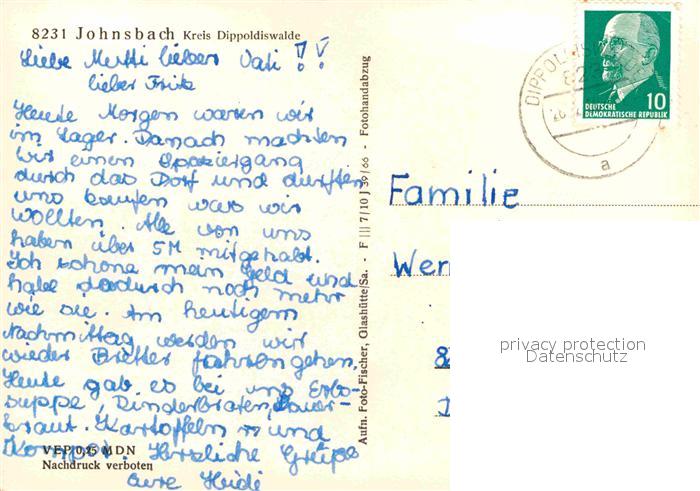 8231 Johnsbach Kreis Dippoldiswalde
Liebe Mutti lieber Vati !!
lieber Fritz
Heute Morgen waren wir
im Lager. Danach machten
wir einen Spaziergang
durch das Dorf und durften
uns kaufen was wir
wollten. Alle von uns
haben über 5M mitgehabt.
Ich schone mein Geld und
habe dadurch noch mehr
wie sie. Am heutigem
Nachmittag werden wir
wieder Bretter fahren gehen.
Heute gab es bei uns Erbs-
suppe, Rinderbraten, Sauer-
kraut. Kartoffeln und
Kompot. Herzliche Grüße
eure Heidi
VEP 0,25 MDN
Nachdruck verboten
Aufn. Foto-Fischer, Glashütte/Sa. - F III 7/10 J 39/66 - Fotohandabzug
DIPPOLDIS
a
DEUTSCHE
DEMOKRATISCHE REPUBLIK
10
Familie
Wer
privacy protection
Datenschutz